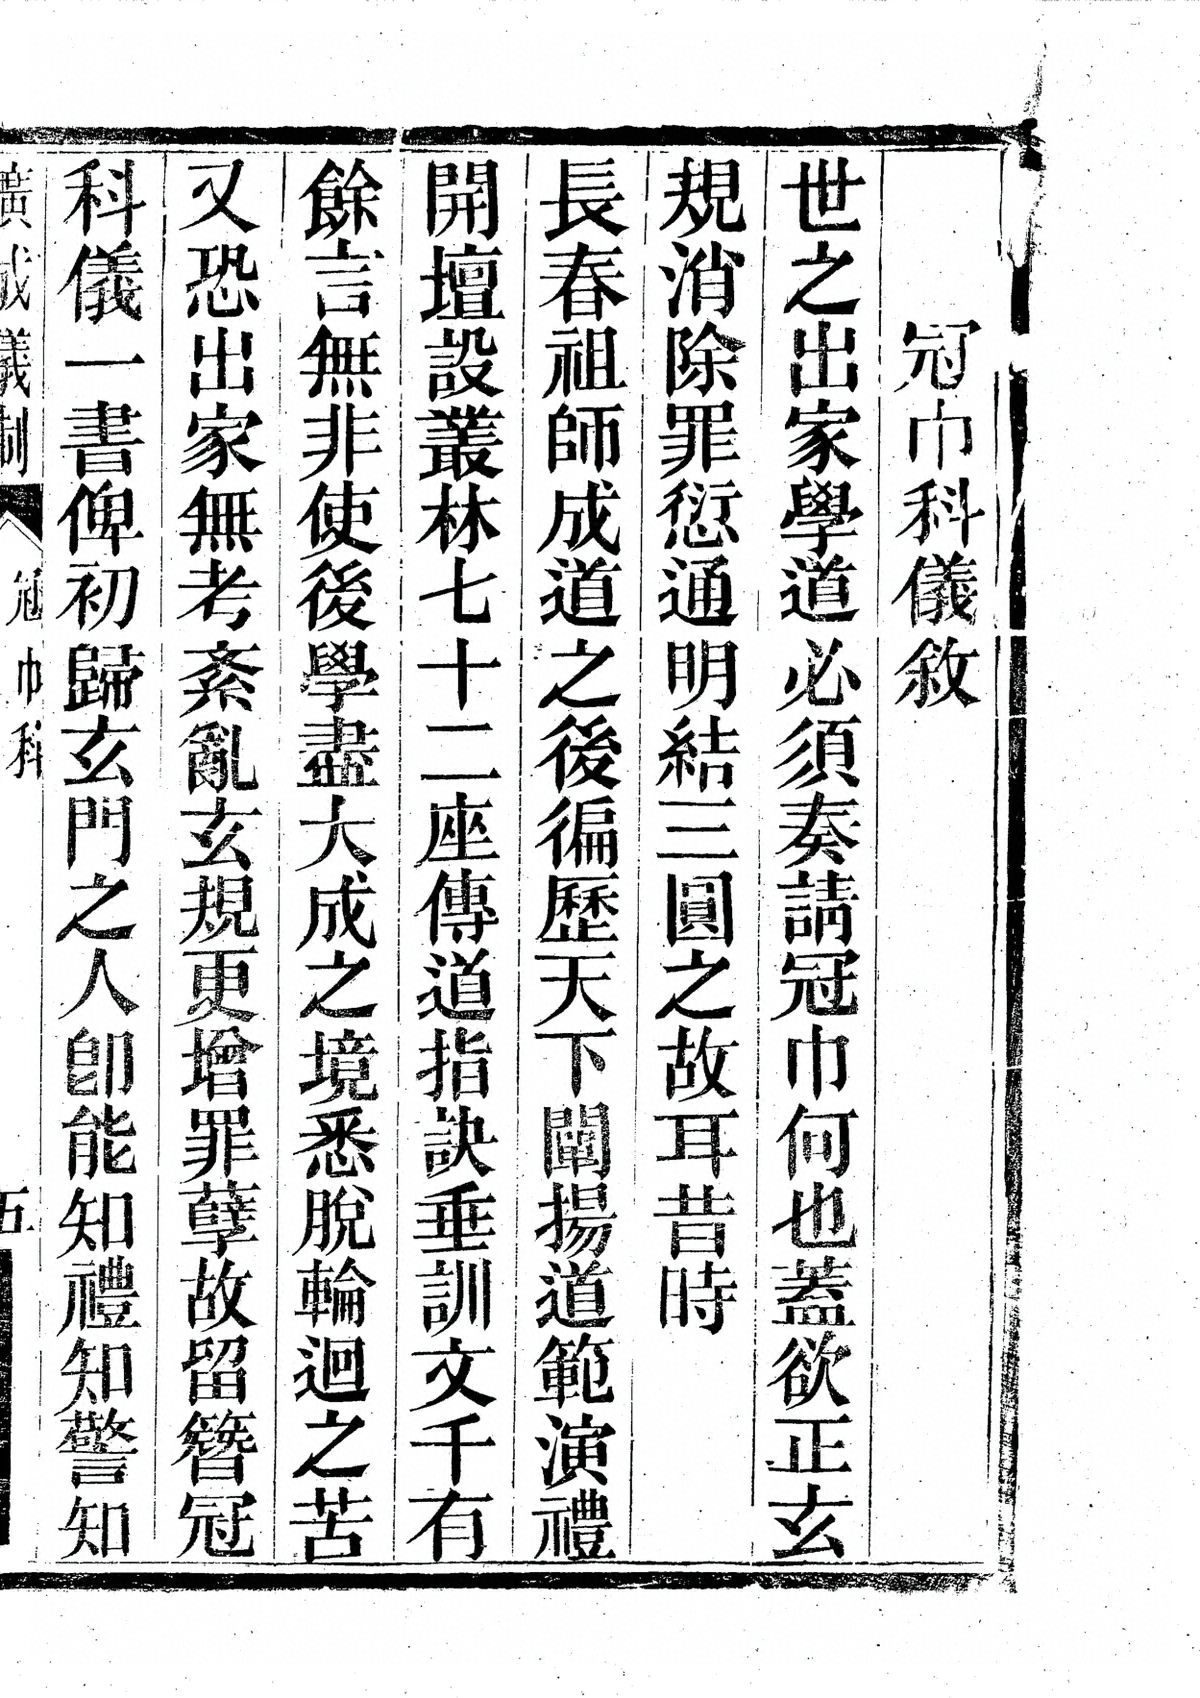 冠巾科儀敘
世之出家學道必須奏請冠巾何也蓋欲正玄
規消除罪愆通明結三圓之故耳昔時
長春祖師成道之後徧歷天下闡揚道範演禮
開壇設叢林七十二座傳道指訣垂訓文千有
餘言無非使後學盡大成之境悉脫輪迴之苦
又恐出家無考紊亂玄規更增罪孽故留簪冠
科儀一書俾初歸玄門之人卽能知禮知警知
廣成儀制 冠巾科 五